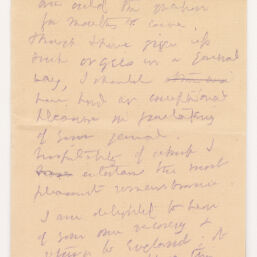 are until the
for months to come.
though I have given up
such orgies in a general
way, I should
have had an exceptional
pleasure in partaking
of your genial
hospitality of which I
have entertain the most
pleasant remembrance.
I am delighted to hear
of your recovery &
return to England. it